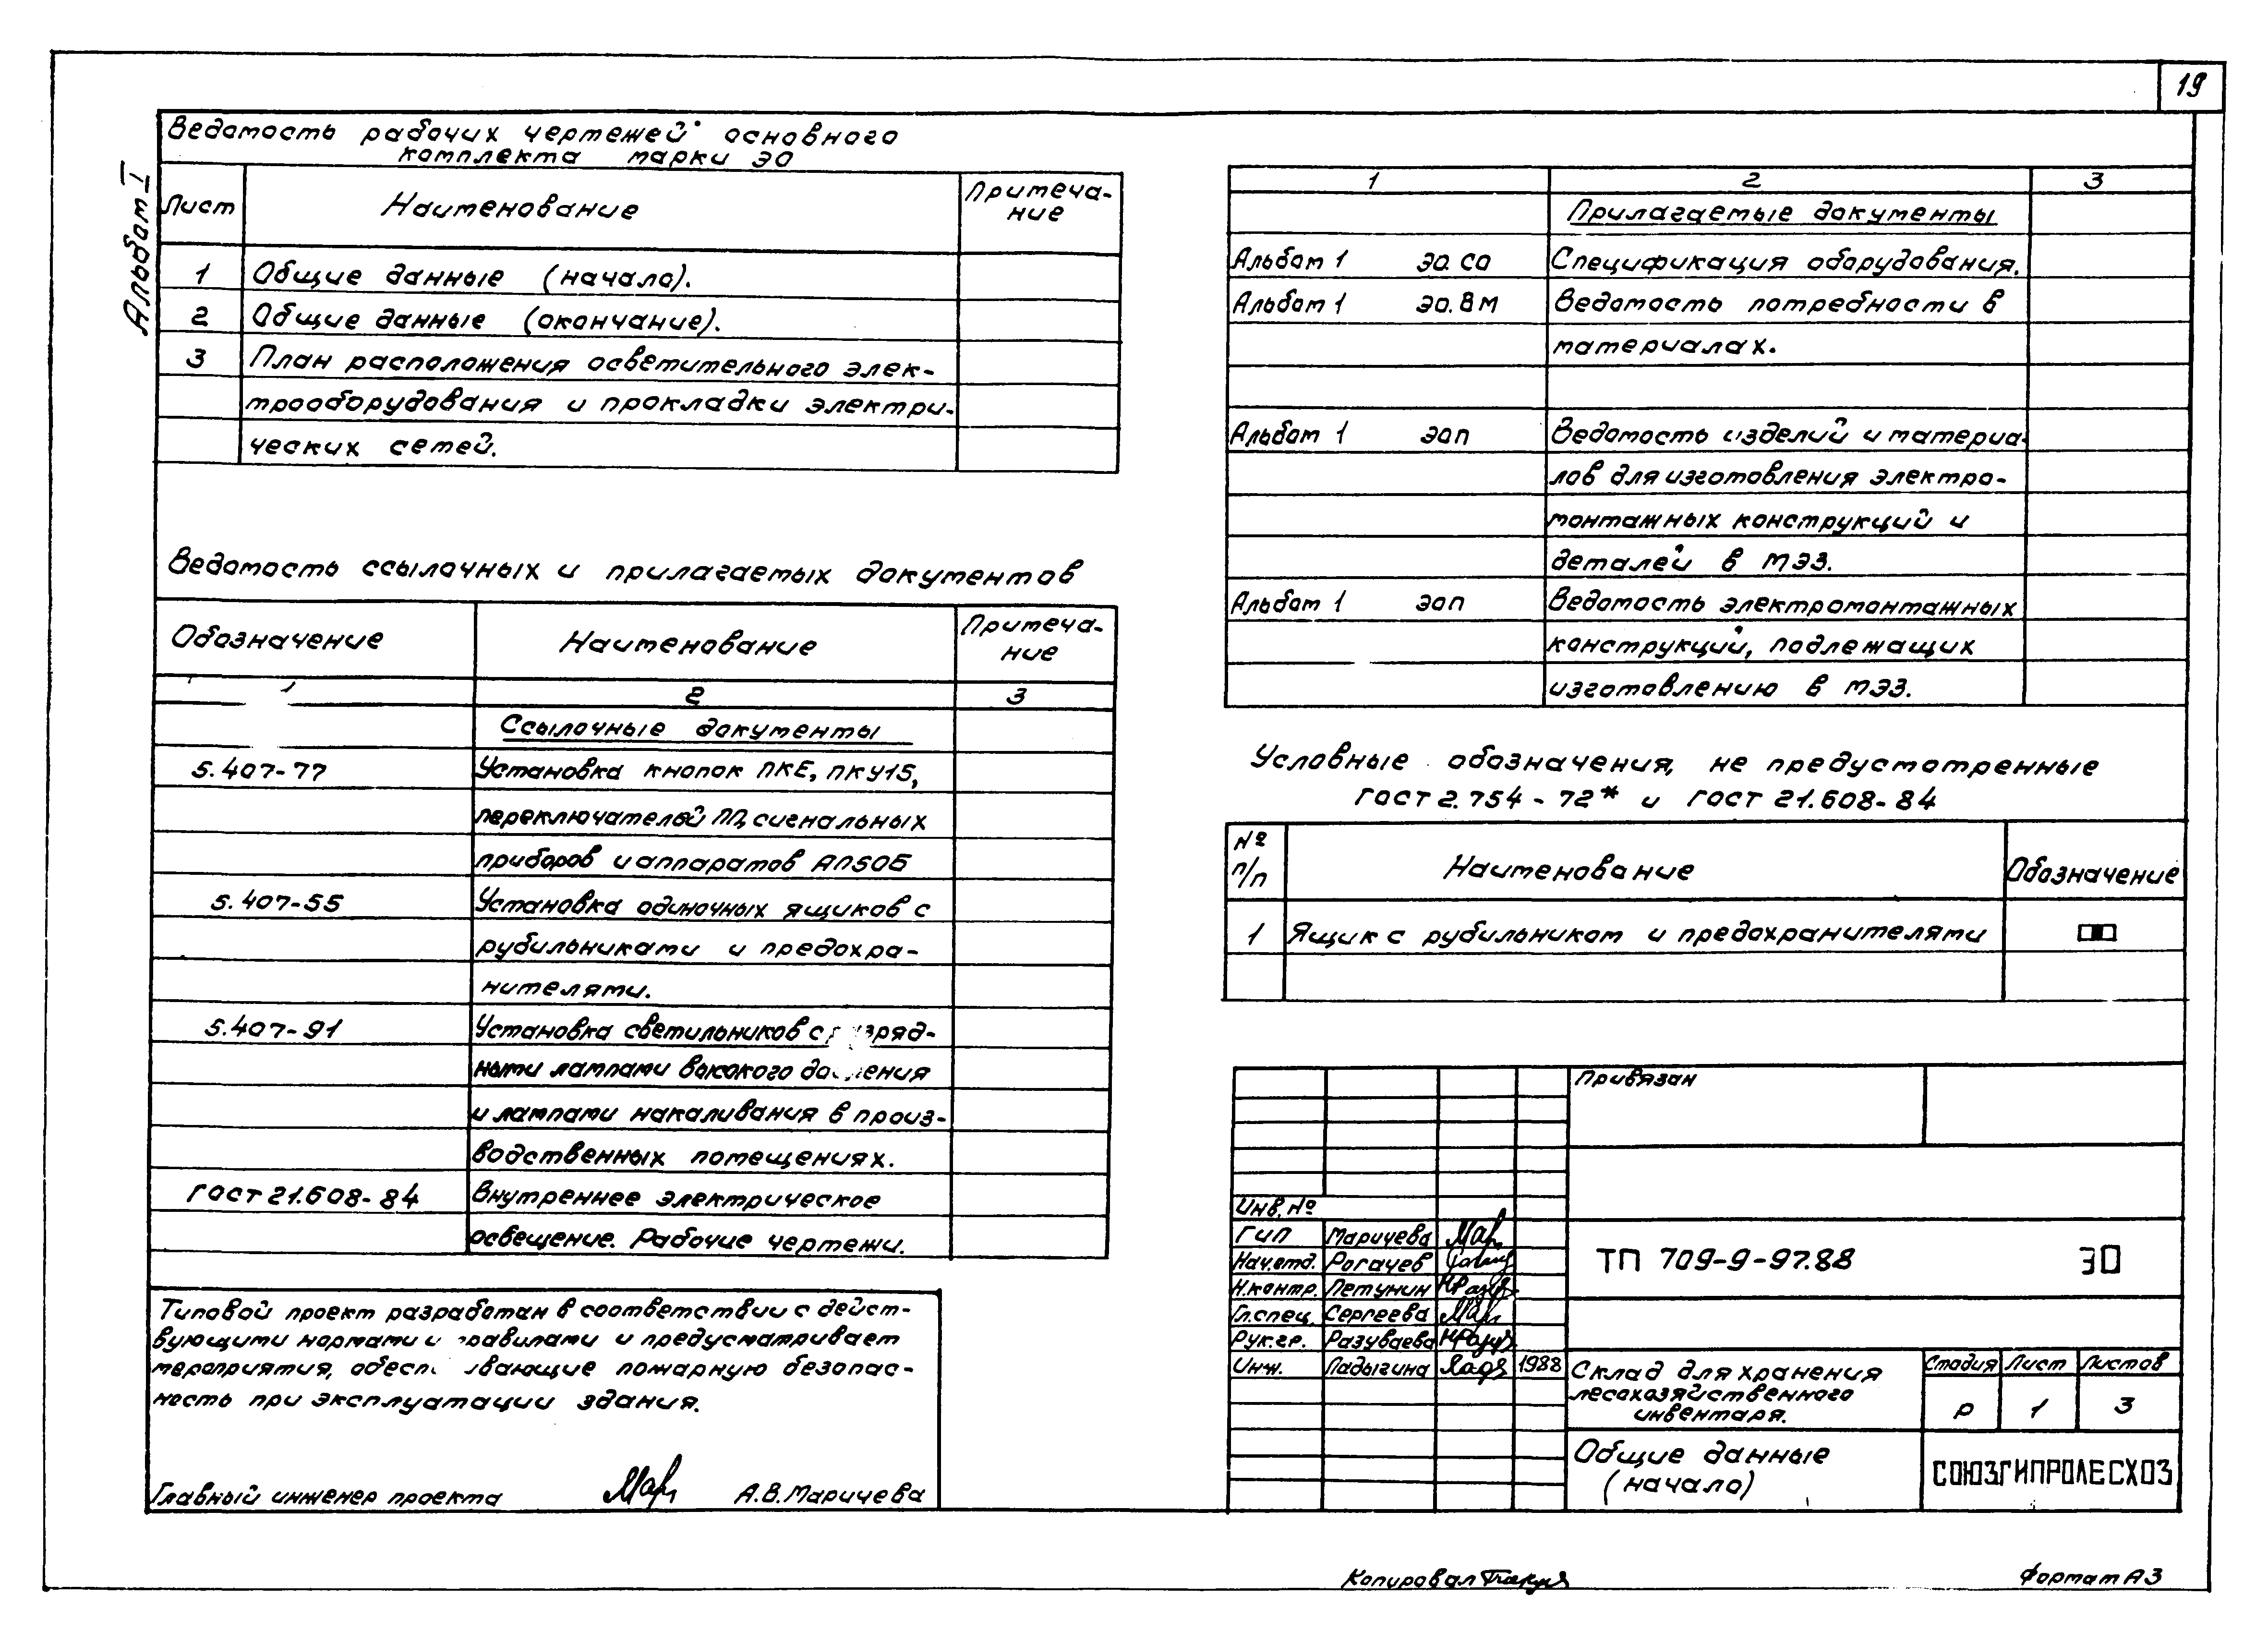 19
Альбом I
Ведомость рабочих чертежей основного
комплекта марки ЭО
Лист Наименование Примеча-
ние
1 Общие данные (начало).
2 Общие данные (окончание).
3 План расположения осветительного элек-
трооборудования и прокладки электри-
ческих сетей.
Ведомость ссылочных и прилагаемых документов
Обозначение Наименование Примеча-
ние
1 2 3
Ссылочные документы
5.407-77 Установка кнопок ПКЕ, ПКУ15,
переключателей ПП, сигнальных
приборов и аппаратов АП50Б
5.407-55 Установка одиночных ящиков с
рубильниками и предохра-
нителями.
5.407-91 Установка светильников с
ными лампами высокого
и лампами накаливания в произ-
водственных помещениях.
ГОСТ 21.608-84 Внутреннее электрическое
освещение. Рабочие чертежи.
Типовой проект разработан в соответствии с дейст-
вующими нормами и правилами и предусматривает
мероприятия, пожарную безопас-
ность при эксплуатации здания.
Главный инженер проекта А.В.Маричева
1 2 3
Прилагаемые документы
Альбом 1 ЭО.СО Спецификация оборудования.
Альбом 1 ЭО.ВМ Ведомость потребности в
материалах.
Альбом 1 ЭОП Ведомость изделий и материа-
лов для изготовления электро-
монтажных конструкций и
деталей в МЭЗ.
Альбом 1 ЭОП Ведомость электромонтажных
конструкций, подлежащих
изготовлению в МЭЗ.
Условные обозначения, не предусмотренные
ГОСТ 2.754-72* и ГОСТ 21.608-84
№
п/п Наименование Обозначение
1 Ящик с рубильником и предохранителями
Привязан
Инв. №
ГИП Маричева
Нач.отд. Рогачев
Н.контр. Петунин
Гл.спец. Сергеева
Рук.гр. Разуваева
Инж. Ладыгина 1988
ТП 709-9-97.88 ЭО
Склад для хранения
лесохозяйственного
инвентаря.
Стадия Лист Листов
Р 1 3
Общие данные
(начало)
СОЮЗГИПРОЛЕСХОЗ
Копировал
Формат А3